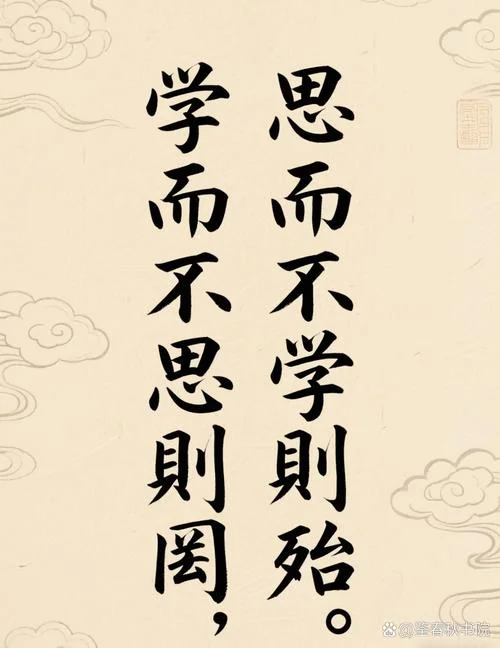 学而不思則罔，
思而不学則殆。
春秋书院